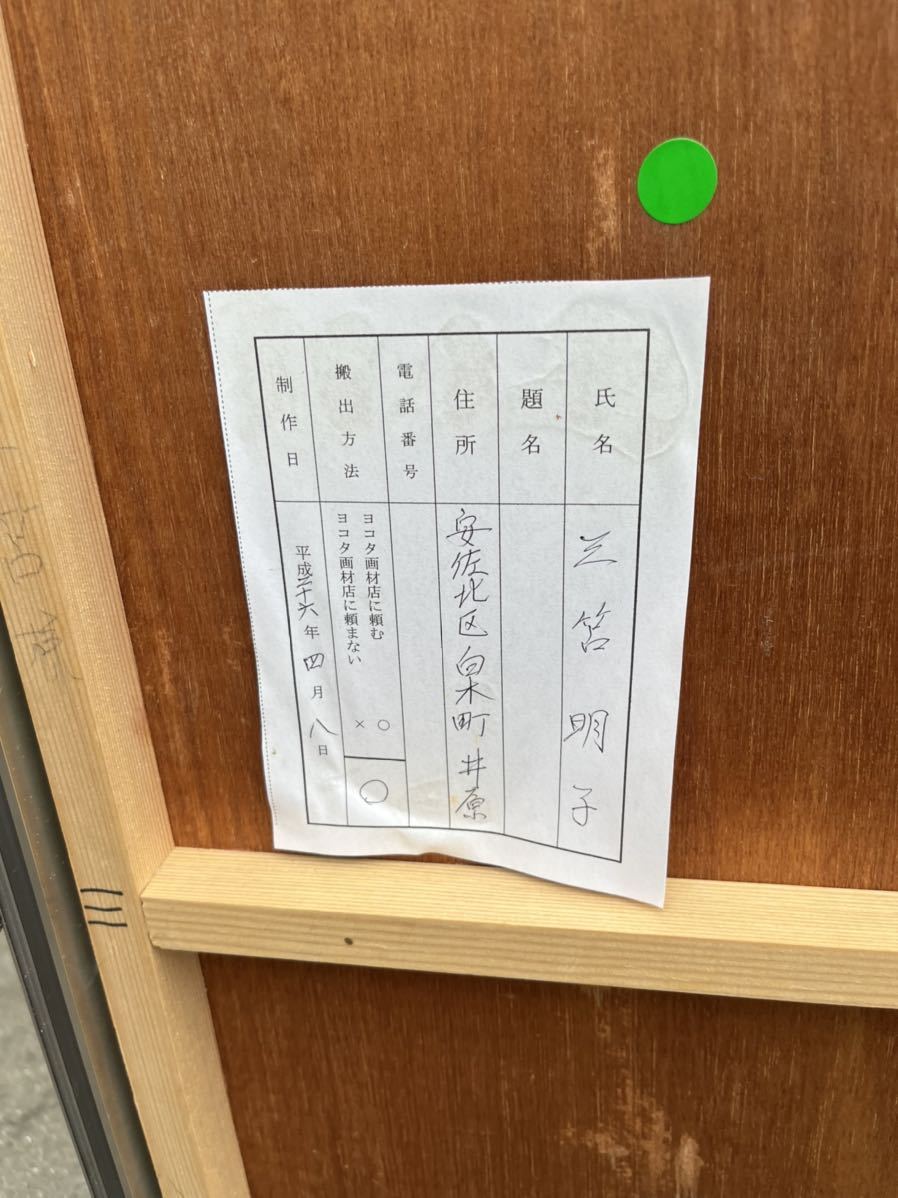 氏名 三笘明子
題名
住所 安佐北区白木町井原
電話番号
搬出方法 ヨコタ画材店に頼む ○
ヨコタ画材店に頼まない ×
○
制作日 平成二十六年四月八日